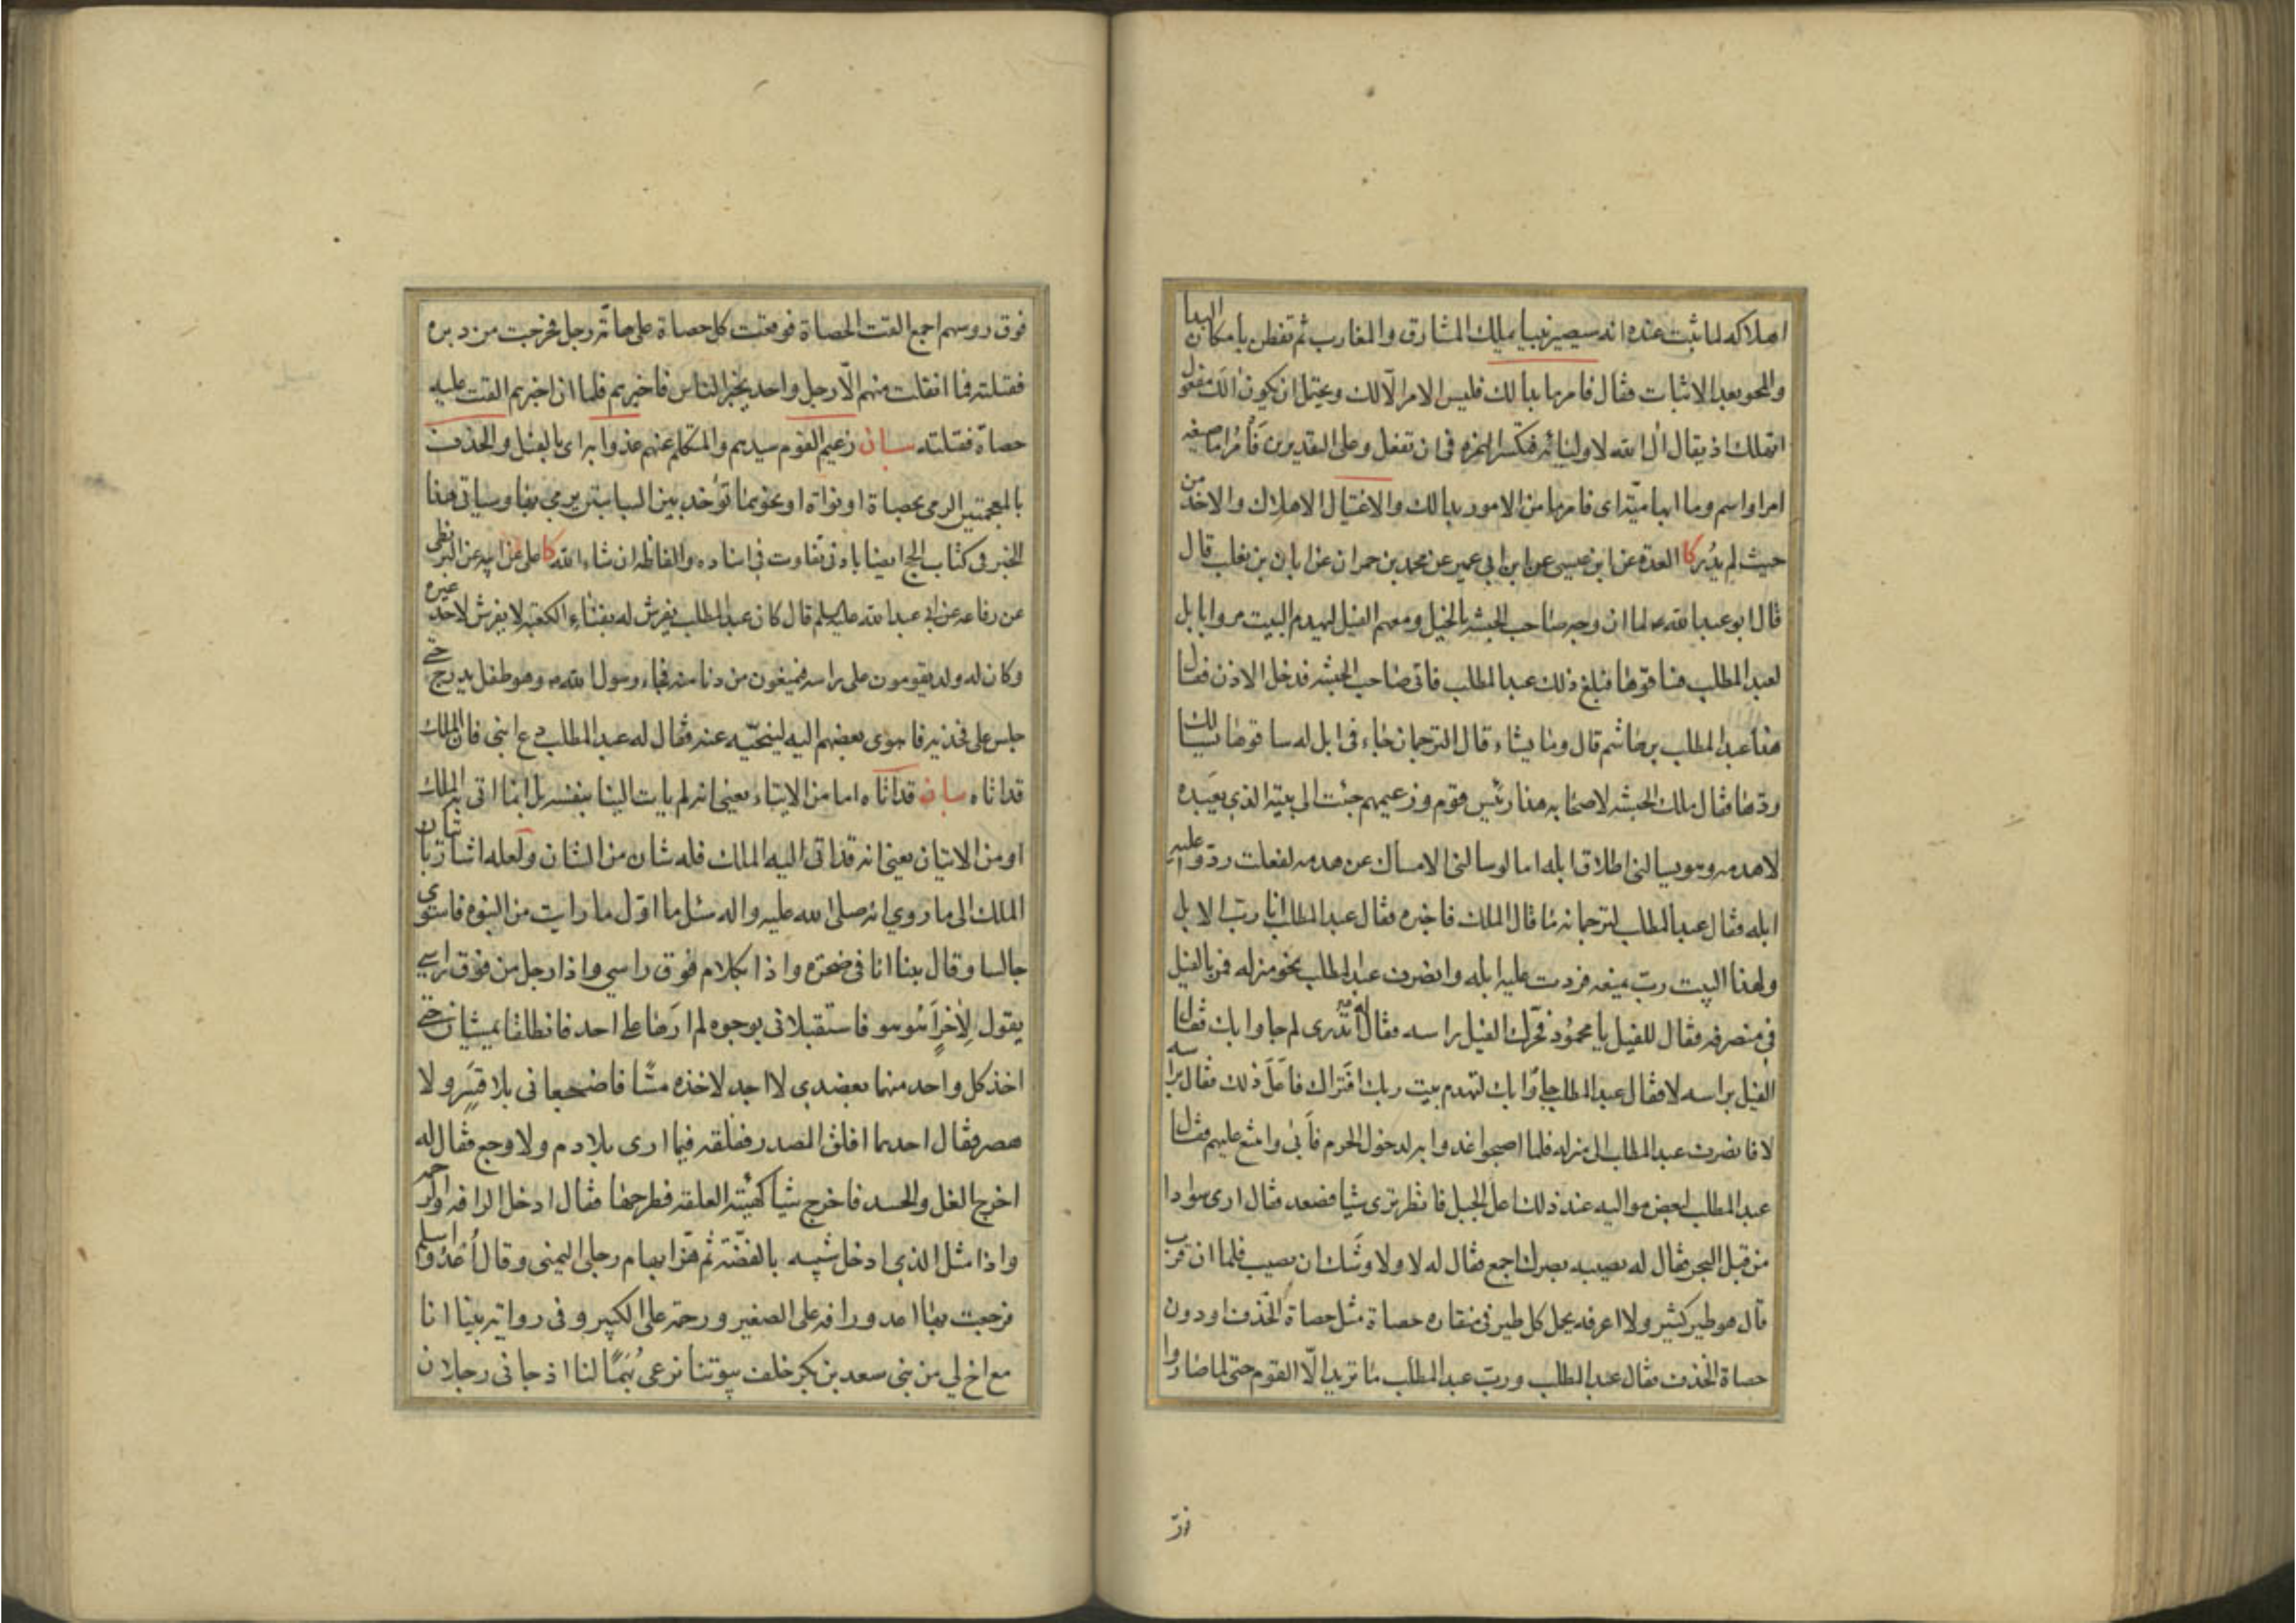 اهلاكه لما ثبت عنده انه سيصير نبيا يملك المشارق والمغارب ثم تفطن بامكان البدا
والمحو بعد الاثبات فقال فامر ما بدا لك فليس الامر الّا لك ويحتمل ان يكون الك مفعول
اتهلك اذ يقال ال الله لاوليائه فتكسر الهمزه فى ان تفعل وعلى التقديرين فأمر اما صيغه
امر او اسم وما ابهاميّة اى فامر ما من الامور بدا لك والاغتيال الاهلاك والاخذ من
حيث لم يُدر كا العدة عن ابن عيسى عن ابن ابي عمير عن محمد بن حمران عن ابان بن تغلب قال
قال ابو عبد الله ع لما ان وجه صاحب الحبشه بالخيل ومعهم الفيل ليهدم البيت مروا بابل
لعبد المطلب فساقوها فبلغ ذلك عبد المطلب فاتى صاحب الحبشه فدخل الاذن فقال
هذا عبد المطلب بن هاشم قال وما يشاء قال الترجمان جاء فى ابل له ساقوها يسالك
ردّها فقال ملك الحبشه لاصحابه هذا رئيس قوم وزعيمهم جئت الى بيته الذي يعبده
لاهدمه وهو يسالنى اطلاق ابله اما لو سالنى الامساك عن هدمه لفعلت ردّوا عليه
ابله فقال عبد المطلب لترجمانه ما قال الملك فاخبره فقال عبد المطلب انا ربّ الابل
ولهذا البيت ربّ يمنعه فردت عليه ابله وانصرف عبد المطلب نحو منزله فمر بالفيل
فى منصرفه فقال للفيل يا محمود فحرّك الفيل راسه فقال له اتدرى لم جاوا بك فقال
الفيل براسه لا فقال عبد المطلب جاؤا بك لتهدم بيت ربك افتراك فاعل ذلك فقال براسه
لا فانصرف عبد المطلب الى منزله فلما اصبحوا غدوا به لدخول الحرم فأبى وامتنع عليهم فقال
عبد المطلب لبعض مواليه عند ذلك اعل الجبل فانظر ترى شيا فصعد فقال ارى سوادا
من قبل البحر فقال له يصيبه بصرك اجمع فقال له لا ولاوشك ان يصيب فلما ان قرب
قال هو طير كثير ولا اعرفه يحمل كل طير فى منقاره حصاة مثل حصاة الخذف او دون
حصاة الخذف فقال عبد المطلب وربّ عبد المطلب ما تريد الّا القوم حتى لما صاروا
فوق روسهم اجمع القت الحصاة فوقعت كل حصاة على هامّة رجل فخرجت من دبره
فقتلته فما انفلت منهم الّا رجل واحد يخبر الناس فاخبرهم فلما ان اخبرهم القت عليه
حصاة فقتلته بيان زعيم القوم سيدهم والمتكلم عنهم غدوا به اى بالفيل والخذف
بالمعجمتين الرمى بحصاة او نواة او نحوهما تؤخذ بين السبابتين يرمى بها وسياتى هذا
الخبر فى كتاب الحج ايضا بادنى تفاوت فى اسناده والفاظه ان شاء الله كا على عن ابيه عن البزنطى
عن رفاعه عن ابى عبد الله عليه السلم قال كان عبد المطلب يفرش له بفناء الكعبة لا يفرش لاحد غيره
وكان له ولد يقومون على راسه فيمنعون من دنا منه فجاء رسول الله ص وهو طفل يدرج حتى
جلس على فخذيه فاهوى بعضهم اليه لينحيّه عنه فقال له عبد المطلب دع ابنى فان الملك
قد اتاه بيان قد اتاه اما من الايتاء يعنى انه لم يات الينا بنفسه بل انما اتى به الملك
او من الاتيان يعنى انه قد اتى اليه الملك فله شان من الشان ولعله اشار باتيان
الملك الى ما روي انه صلى الله عليه واله سئل ما اوّل ما رايت من النبوه فاستوى
جالسا وقال بينا انا فى صحرة واذا بكلام فوق راسي واذا رجل من فوق راسي
يقول لِاٰخر أهو هو فاستقبلانى بوجوه لم ارها على احد فانطلقا يمشيان حتى
اخذ كل واحد منهما بعضدى لا اجد لاخذه مسًّا فاضجعانى بلا قسر ولا
هصر فقال احدهما افلق المصدر ففلقه فيما ارى بلا دم ولا وجع فقال له
اخرج الغل والحسد فاخرج شيأ كهيئة العلقة فطرحها فقال ادخل الرافه والرحمه
واذا مثل الذي ادخل شبيه بالفضّة ثم هزّ ابهام رجلى اليمنى وقال اُغد واسلم
فرجعت بها اغدو رافه على الصغير ورحمة على الكبير وفى رواية بينا انا
مع اخ لي من بنى سعد بن بكر خلف بيوتنا نرعى بُهمًا لنا اذ جانى رجلان